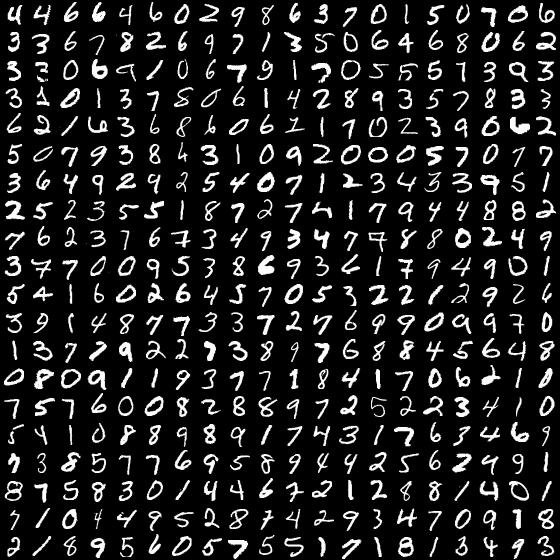 4 4 6 6 4 6 0 2 9 8 6 3 7 0 1 5 0 7 0 6
3 3 6 7 8 2 6 9 7 1 3 5 0 6 4 6 8 0 6 2
3 3 0 6 9 1 0 6 7 9 1 7 0 5 5 5 7 3 9 3
3 2 0 1 3 7 8 0 6 1 4 2 8 9 3 5 7 8 3 3
6 2 1 6 3 6 8 6 0 6 1 1 7 0 2 3 9 0 6 2
5 0 7 9 3 8 4 3 1 0 9 2 0 0 0 5 7 0 7 7
3 6 4 9 2 9 2 5 4 0 7 1 2 3 4 3 3 9 5 1
2 5 2 3 5 5 1 8 7 2 7 4 1 7 9 4 4 8 8 2
7 6 2 3 7 6 7 3 4 9 3 4 7 7 8 8 0 2 4 9
3 7 7 0 0 9 5 3 8 6 9 3 6 1 7 9 4 9 0 1
5 4 1 6 0 2 6 4 5 7 0 5 3 2 2 1 2 9 2 6
3 9 1 4 8 7 7 3 3 7 2 7 6 9 9 0 9 9 7 0
1 3 7 7 9 2 2 7 3 8 9 7 6 8 8 4 5 6 4 8
0 8 0 9 1 1 9 3 7 7 1 8 4 1 7 0 6 2 1 0
7 5 7 6 0 0 8 2 8 8 9 7 2 5 2 2 3 4 1 0
5 4 1 0 8 8 9 8 9 1 7 4 3 1 7 6 3 4 6 9
7 3 8 5 7 7 6 9 5 8 9 4 4 2 5 6 2 4 9 1
8 7 5 8 3 0 1 4 4 6 7 2 1 2 8 8 1 4 0 1
7 1 0 4 4 9 5 2 8 7 4 2 9 3 4 7 0 9 1 8
2 1 8 9 5 6 0 5 7 5 5 1 7 1 8 1 3 4 9 3